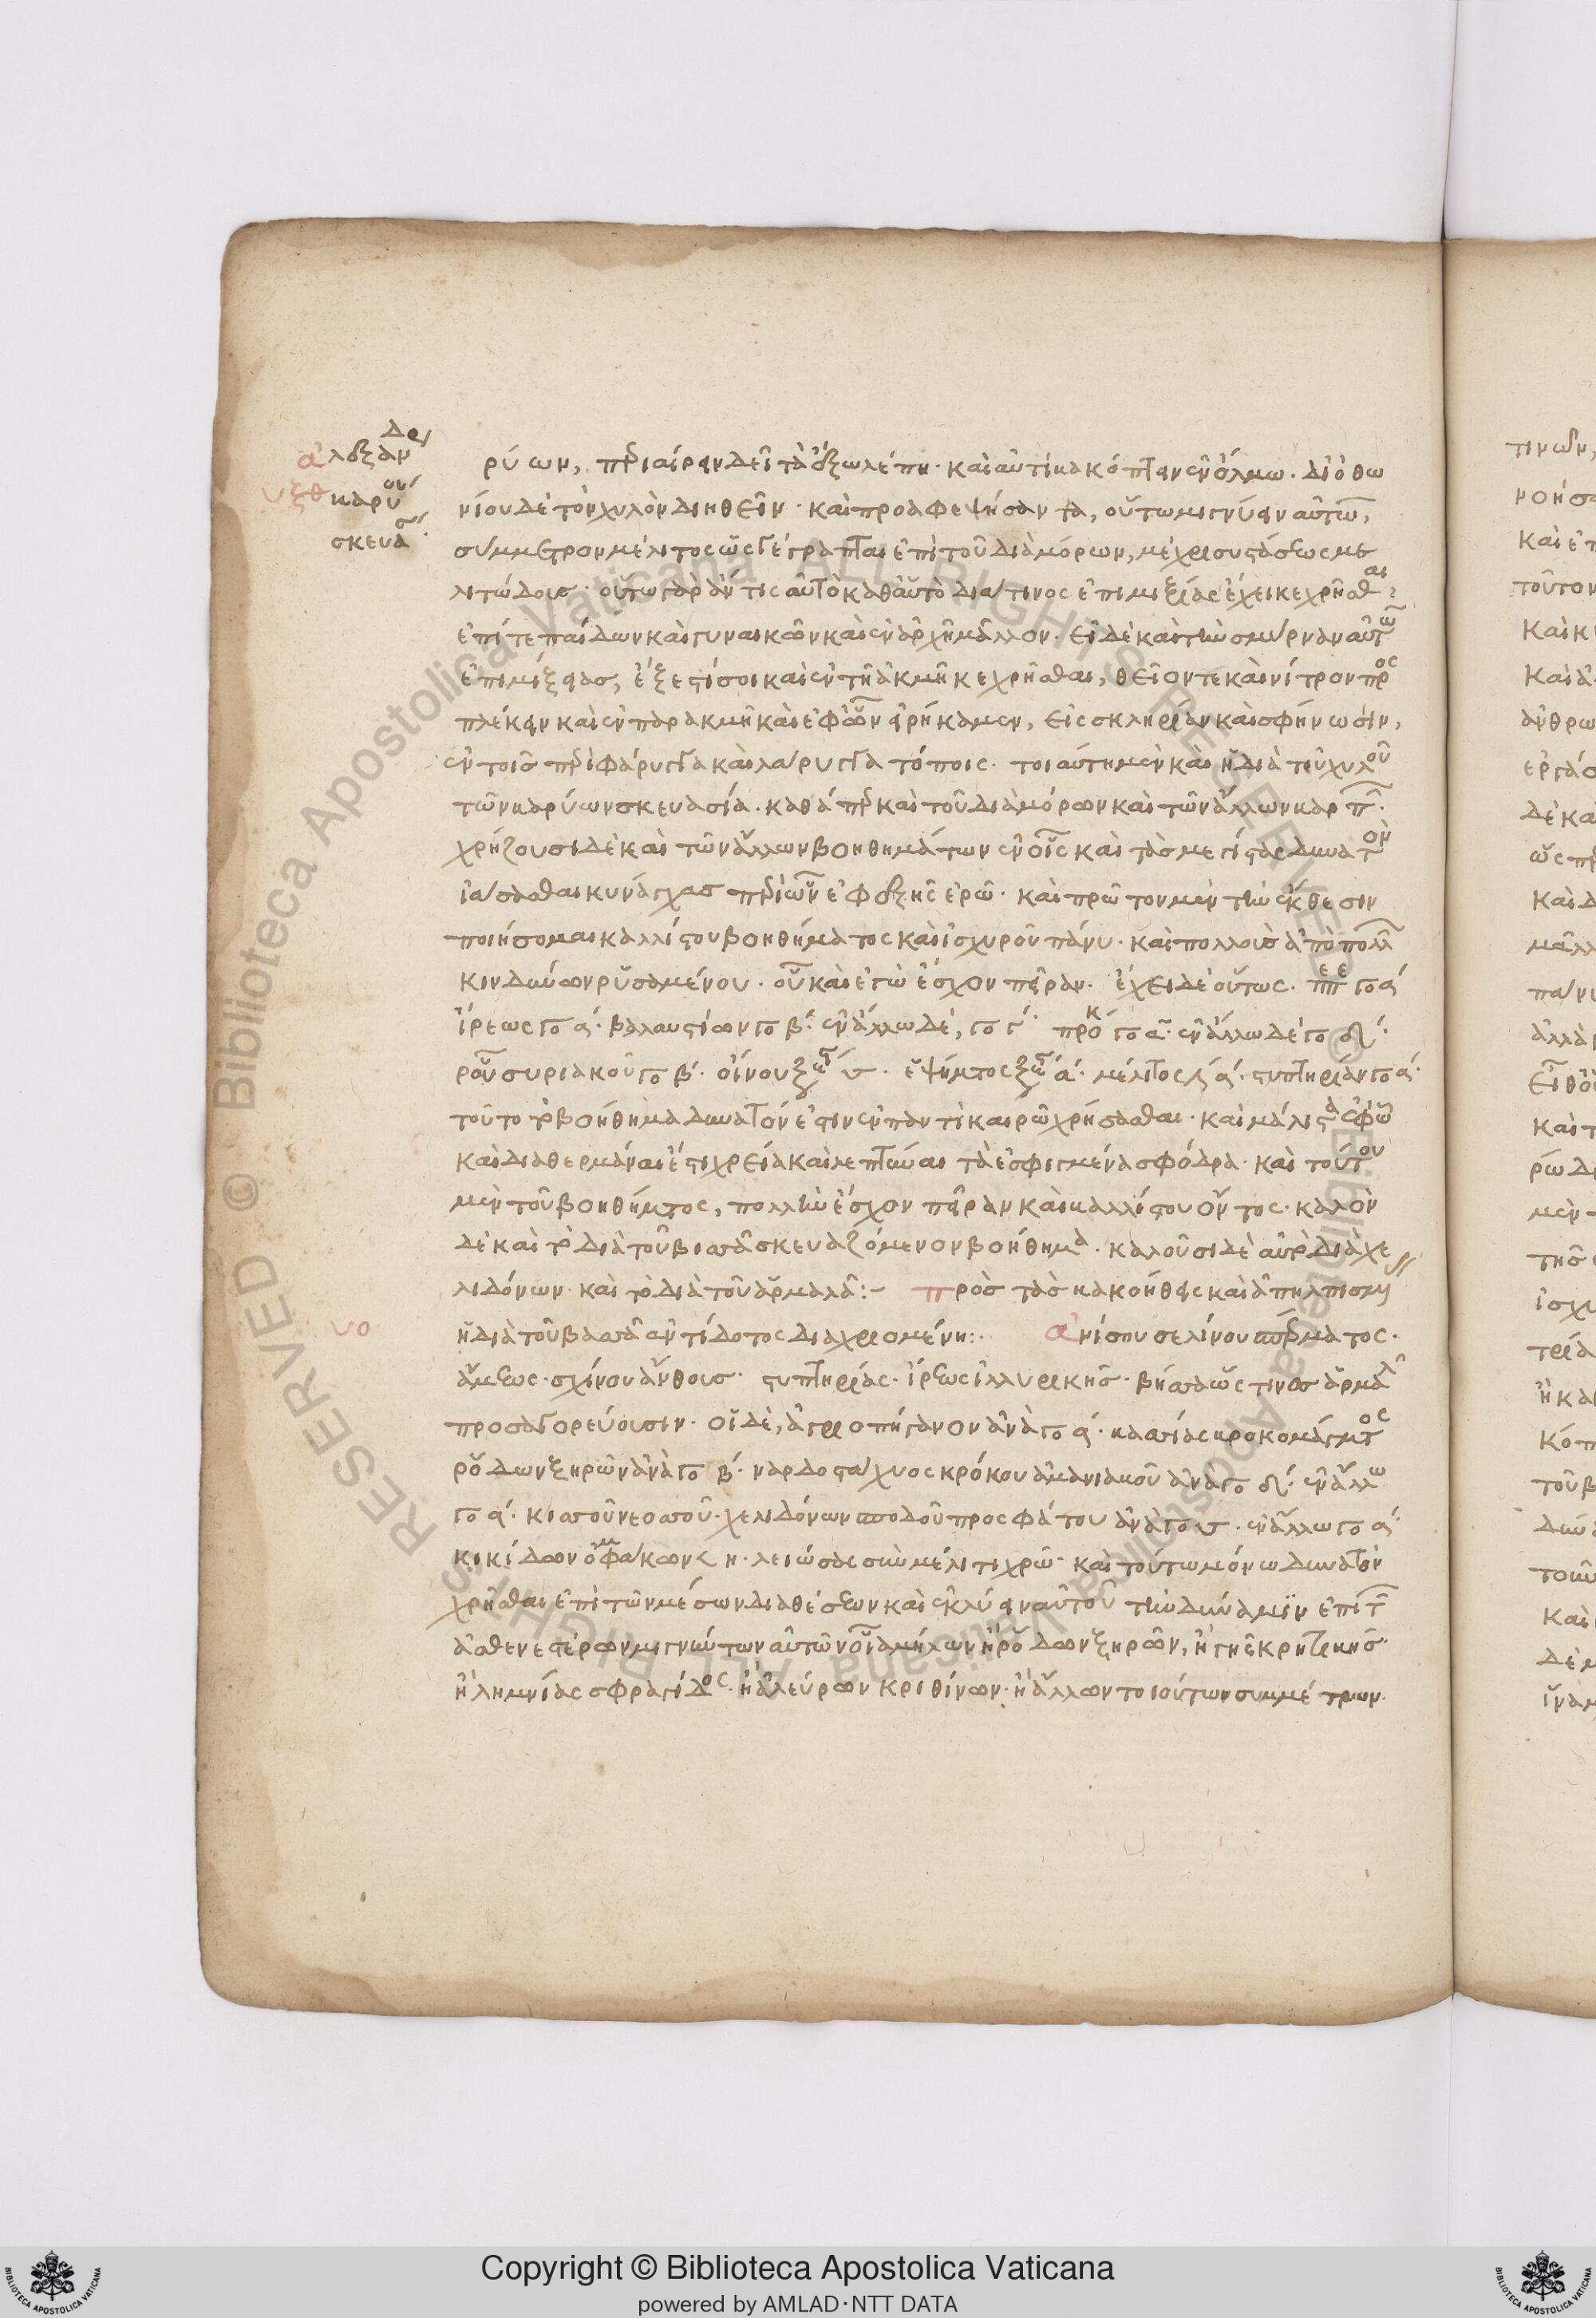 ἀλεξάν δρι
υξθ καρύων
σκευα.
ρύων, περιαίρειν δεῖ τὰ ἔξω λέπη· καὶ αὐτίκα κόπτειν ἐν ὅλμω. δι' ὀθω
νίου δὲ τὸν χυλὸν διηθεῖν· καὶ προαφεψήσαντα, οὕτω μιγνύειν αὐτῶ,
σύμμετρον μέλιτος ὡς γέγραπται ἐπὶ τοῦ διὰ μόρων, μέχρι συστάσεως με
λιτώδους· οὕτω γὰρ ἄν τις αὐτὸ καθ' αὑτὸ διά τινος ἐπιμιξίας ἔχει κεχρῆσθαι
ἐπί τε παίδων καὶ γυναικῶν καὶ ἐν ἀρχῆ μᾶλλον. εἰ δὲ καὶ τὴν σμύρναν αὐτῶ
ἐπιμίξεις, ἔξεστί σοι καὶ ἐν τῆ ἀκμῆ κεχρῆσθαι, θεῖον τε καὶ νίτρον προσ
πλέκειν καὶ ἐν παρακμῆ καὶ ἐφ' ὧν εἰρήκαμεν, εἰς σκληρίαν καὶ σφήνωσιν,
ἐν τοῖς περὶ φάρυγγα καὶ λάρυγγα τόποις. τοιαύτη μὲν καὶ ἡ διὰ τοῦ χυλοῦ
τῶν καρύων σκευασία. καθάπερ καὶ τοῦ διὰ μόρων καὶ τῶν ἄλλων καρπῶν.
χρήζουσι δὲ καὶ τῶν ἄλλων βοηθημάτων ἐν οἷς καὶ τὰς μεγίστας δυνατὸν
ἰάσασθαι κυνάγχας περὶ ὧν ἐφεξῆς ἐρῶ· καὶ πρῶτον μὲν τὴν ἔκθεσιν
ποιήσομαι καλλίστου βοηθήματος καὶ ἰσχυροῦ πάνυ· καὶ πολλοὺς ἀπὸ πολλῶν
κινδύνων ῥυσαμένου. οὗ καὶ ἐγὼ ἔσχον πεῖραν. ἔχει δὲ οὕτως. πεπε γο α΄
ἴρεως γο α΄. βαλαυστίων γο β΄. ἐν ἄλλω δὲ, γο γ΄ πρόκ γο α΄. ἐν ἄλλω δὲ γο
ροῦ συριακοῦ γο β΄. οἴνου ξέστ. ἑψήματος ξέστ α΄. μέλιτος λ α΄. στυπτηρίαν γο α΄.
τοῦτο τὸ βοήθημα δυνατόν ἐστιν ἐν παντὶ καιρῶ χρήσασθαι. καὶ μάλιστα ἐφ' ὧν
καὶ διαθερμάναι ἔστι χρεία καὶ λεπτύναι τὰ ἐσφιγμένα σφόδρα· καὶ τούτου
μὲν τοῦ βοηθήματος, πολλὴν ἔσχον πεῖραν καὶ καλλίστου ὄντος. καλὸν
δὲ καὶ τὸ διὰ τοῦ βησασᾶ σκευαζόμενον βοήθημα. καλοῦσι δὲ αὐτὸ διὰ χε
λιδόνων· καὶ τὸ διὰ τοῦ ἁρμαλᾶ:– πρὸς τὰς κακοήθεις καὶ ἀπηλπισμ
υο
ἡ διὰ τοῦ βησασᾶ ἀντίδοτος διαχριομένη:. ἀνίσου σελίνου σπέρματος.
ἄμεως· σχίνου ἄνθους· στυπτηρίας· ἴρεως ἰλλυρικῆς· βησασᾶ ὥς τινες ἁρμαλᾶ
προσαγορεύουσιν· οἱ δὲ, ἀγριοπήγανον ἀνὰ γο α΄. κασίας κροκομάγματος
ῥόδων ξηρῶν ἀνὰ γο β΄. ναρδοστάχυος κρόκου ἀμανιακοῦ ἀνὰ γο ἐν ἄλλω
γο α΄. κισσοῦ νεοσσοῦ· χελιδόνων σποδοῦ προσφάτου ἀνὰ γο ἐν ἄλλω γο α΄.
κικίδων ὀμφακίων η· λειώσας σὺν μέλιτι χρῶ· καὶ τούτω μόνω δυνατὸν
χρῆσθαι ἐπὶ τῶν μέσων διαθέσεων καὶ ἐκλύειν αὐτοῦ τὴν δύναμιν ἐπὶ τῶν
ἀσθενεστέρων μιγνύντων αὐτῶν οἷα μήλων ἢ ῥόδων ξηρῶν, ἢ γῆς κρητικῆς.
ἢ λημνίας σφραγίδος· ἢ ἀλεύρων κριθίνων· ἢ ἄλλων τοιούτων συμμέτρων.
Copyright © Biblioteca Apostolica Vaticana
powered by AMLAD·NTT DATA